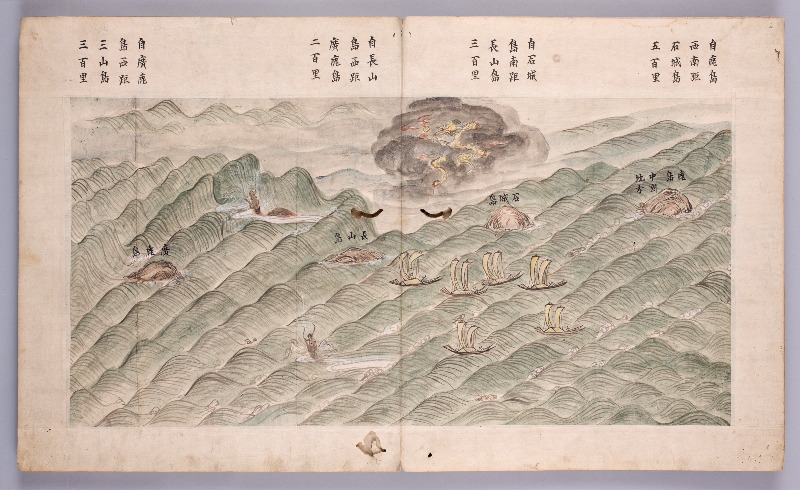 自鹿島
西南距
石城島
五百里
自石城
島南距
長山島
三百里
自長山
島西距
廣鹿島
二百里
自廣鹿
島西距
三山島
三百里
鹿島
中朝
石城島
長山島
廣鹿島